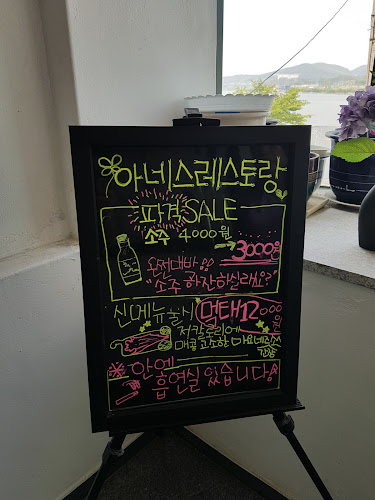 아네스레스토랑
파격SALE
소주 4.000원
→3000원
완전대박
"소주 한잔하실래요?"
신메뉴출시 먹태12000원
저칼로리에
매콤고소한 마요네즈소스
안에
흡연실 있습니다